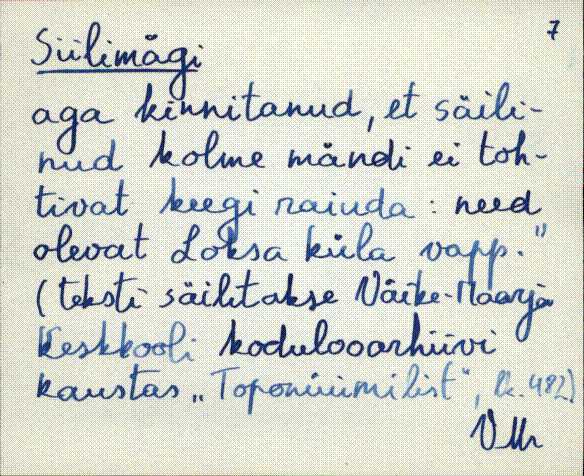 7
Siilimägi
aga kinnitanud, et säili-
nud kolme mändi ei toh-
tivat keegi raiuda: need
olevat Loksa küla vapp."
(teksti säilitakse Väike-Maarja
Keskkooli kodulooarhiivi
kaustas „Toponüümilist", lk. 482)